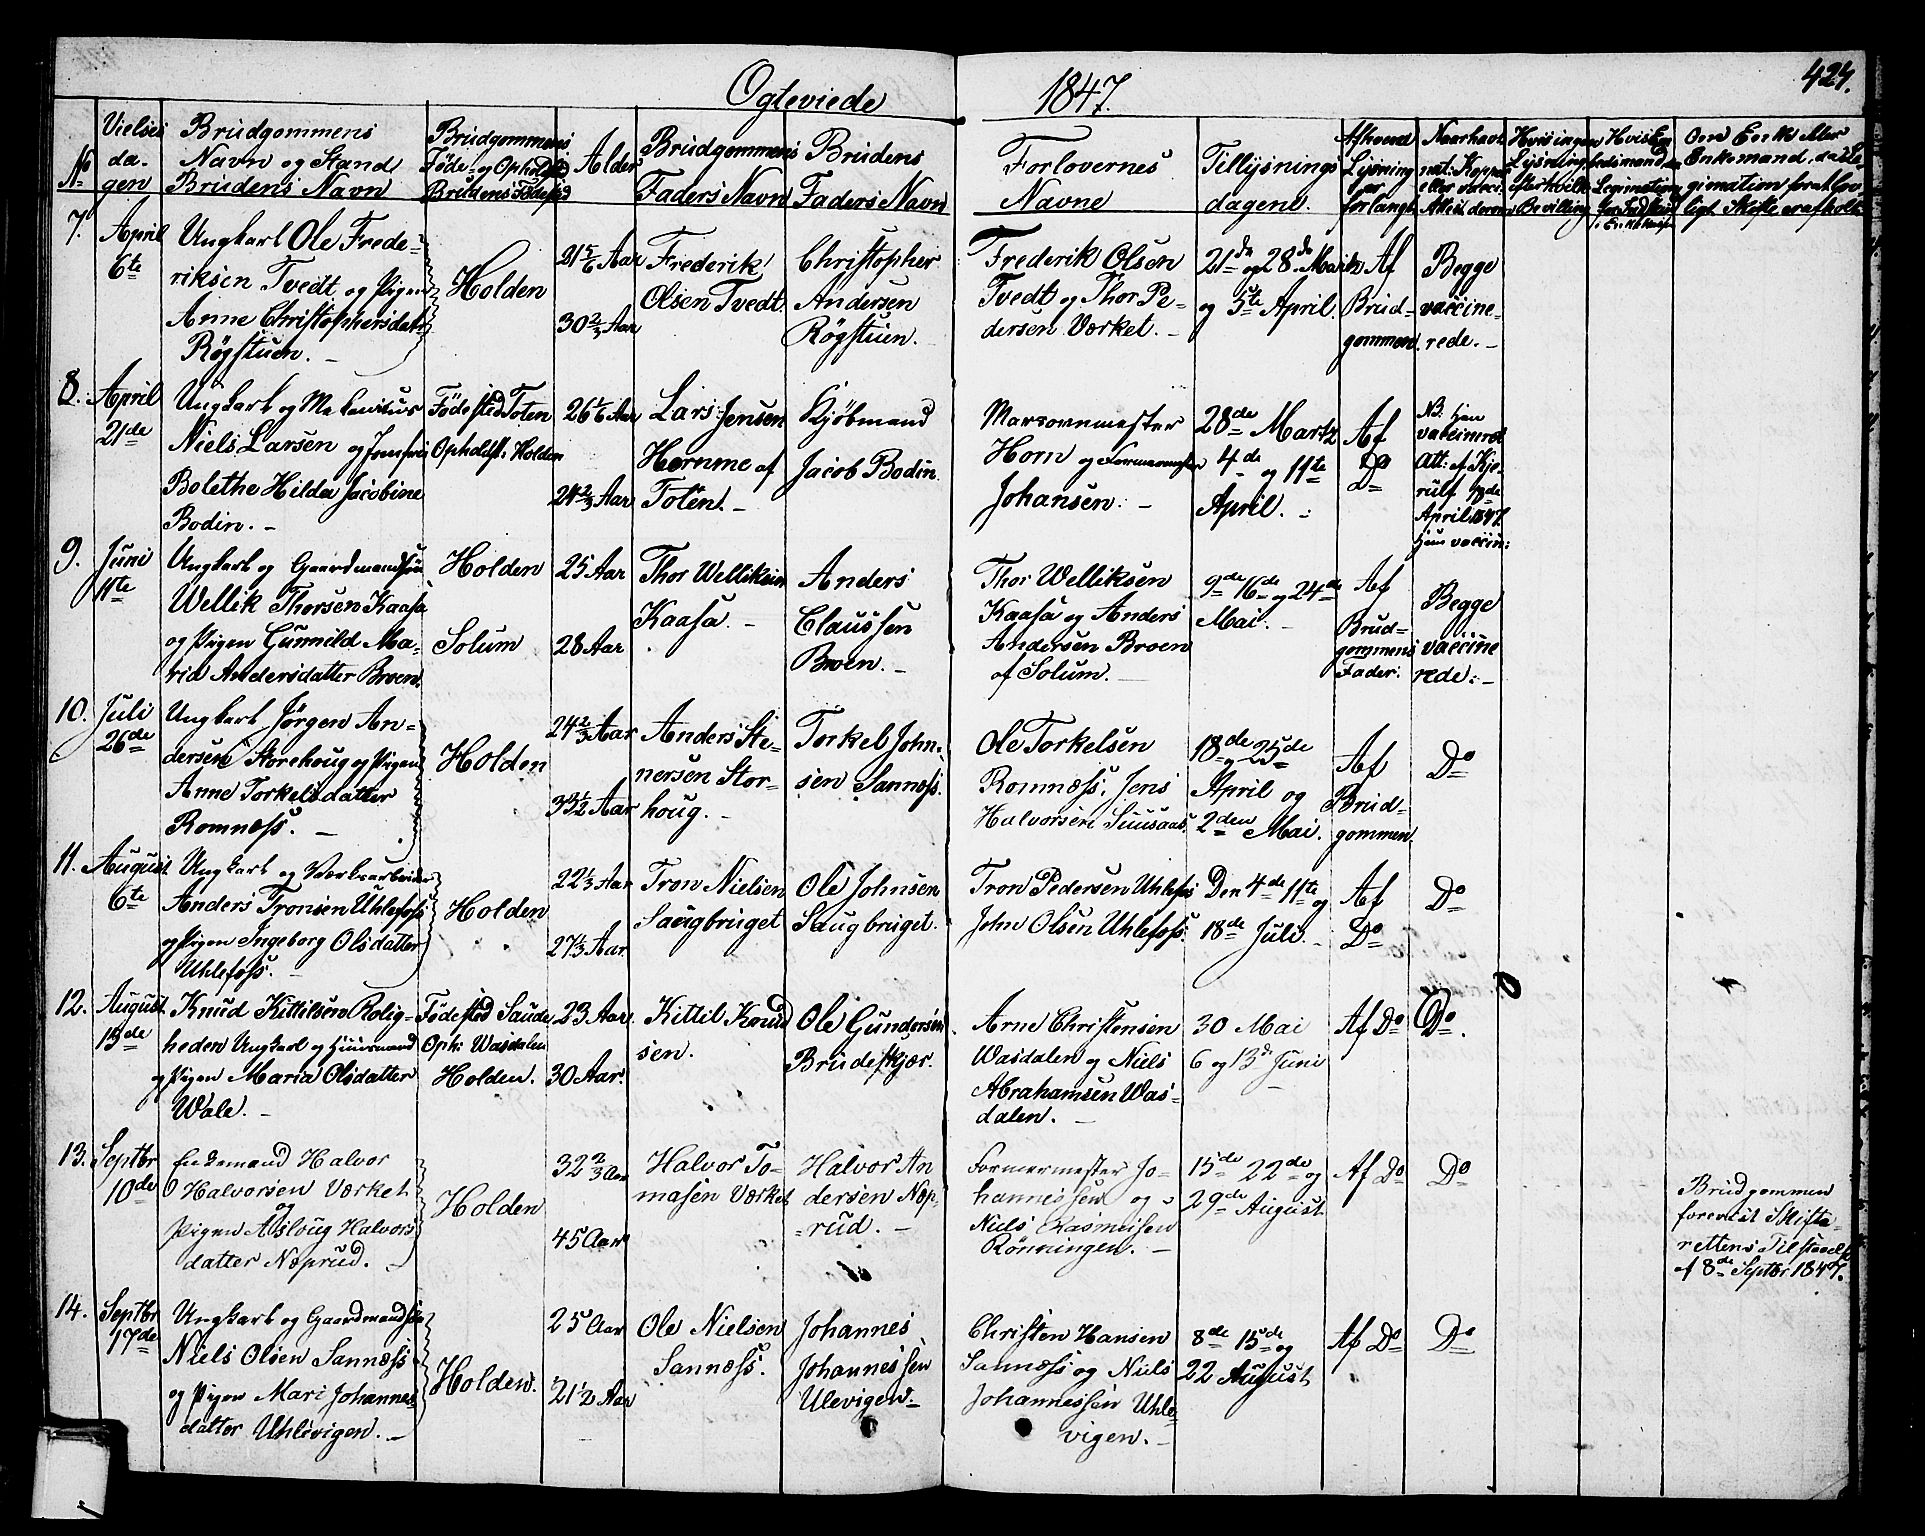 Ogteviede 1847. 424.
No
Vielses
da-
gen
Brudgommens
Navn og Stand
Brudens Navn
Brudgommens
Føde- og Opholdsted
Brudens Fødested
Alder
Brudgommens
Faders Navn
Brudens
Faders Navn
Forlovernes
Navne
Tillysnings
dagene.
Af hvem
Lysning
er
forlangt
Naar havt
nat: Kopper
eller vacci.
Attest derom
Hvis ingen
Lysning
efter hvilk.
Bevilling
Om Enke eller
Enkemand, da Le-
gimation for at lov-
ligt Skifte er afholdt
7.
April
6te
Ungkarl Ole Frede-
riksen Tvedt og Pigen
Anne Christophersdatr
Røgstuen. -
Holden
21 5/6 Aar
30 2/3 Aar
Frederik
Olsen Tvedt.
Christopher
Andersen
Røgstuen. -
Frederik Olsen
Tvedt og Thor Pe-
dersen Værket. -
21de og 28de Marth
og 5te April.
Af
Brud-
gommen.
Begge
vaccine-
rede. -
8.
April
21de
Ungkarl og
Niels Larsen og Jomfru
Bolethe Hilda Jacobine
Bodin. -
Fødested Toten
Opholdst. Holden
26 5/6 Aar
24 2/3 Aar
Lars Jensen
Hornme af
Toten. -
Kjøbmand
Jacob Bodin.
Masovnmester
Horn og Formermester
Johansen. -
28de Martz
4de og 11te
April. -
Af
Do
vaccineret
Att: af Kje-
rulf
April 1847.
vaccin:
9.
Juni
11te
Ungkarl og Gaardmandssøn
Wellik Thorsen Kaasa
og Pigen Gunnild Ma-
ria Andersdatter Broen.
Holden
Solum
25 Aar
28 Aar
Thor Welliksen
Kaasa. -
Anders
Claussen
Broen. -
Thor Welliksen
Kaasa og Anders
Andersen Broen
af Solum. -
9de 16de og 24de
Mai. -
Af
Brud-
gommens
Fader.
Begge
vaccine
rede. -
10.
Juli
26de
Ungkarl Jørgen An-
dersen Storehoug og Pigen
Anne Torkelsdatter
Romnæss. -
Holden
24 2/3 Aar
33 1/2 Aar
Anders Ste-
nersen Stor-
houg. -
Torkel John-
sen Sannæss.
Ole Torkelsen
Romnæss, Jens
Halvorsen Suusaas
18de og 25de
April og
2den Mai.
Af
Brud-
gommen.
Do
11.
August
6te
Ungkarl og Værksarbeider
Anders Tronsen Uhlefoss
og Pigen Ingeborg Olsdatter
Uhlefoss. -
Holden
22 1/3 Aar
27 1/3 Aar
Tron Nielsen
Saugbruget
Ole Johnsen
Saugbruget.
Tron Pedersen Uhlefoss
John Olsen Uhlefoss.
Den 4de 11te og
18de Juli. -
Af
Do
Do
12.
August
13de
Knud Kittilsen Rolig-
heden Ungkarl og Huusmand
og Pigen Maria Olsdatter
Wale. -
Fødested Saude
Oph: Wasdalen
Holden.
23 Aar.
30 Aar.
Kittil Knud
sen.
Ole Gundersen
Brudeskjær.
Arne Christensen
Wasdalen og Niels
Abrahamsen Was-
dalen. -
30 Mai
6 og 13de Juni
Af Do
Do.
13.
Septbr
10de
Enkemand Halvor
Halvorsen Værket
og
Pigen Asloug Halvors
datter Næprud. -
Holden
32 2/3 Aar
45 Aar
Halvor To-
masen Værket
Halvor An
dersen Næp-
rud. -
Formermester Jo-
hannessen og
Niels Rasmusen
Rønningen. -
15de 22de og
29de August
Af Do
Do
Brudgommen
foreviist Skifte-
rettens Tilstaaelse
af 8de Septbr 1847.
14.
Septbr
17de
Ungkarl og Gaardmandssøn
Niels Olsen Sannæss
og Pigen Mari Johannes-
datter Uhlevigen. -
Holden.
25 Aar
21 1/2 Aar
Ole Nielsen
Sannæss.
Johannes
Johannessen
Ulevigen. -
Christen Hansen
Sannæss og Niels
Johannessen Uhle-
vigen. -
8de 15de og
22 August
Af Do
Do